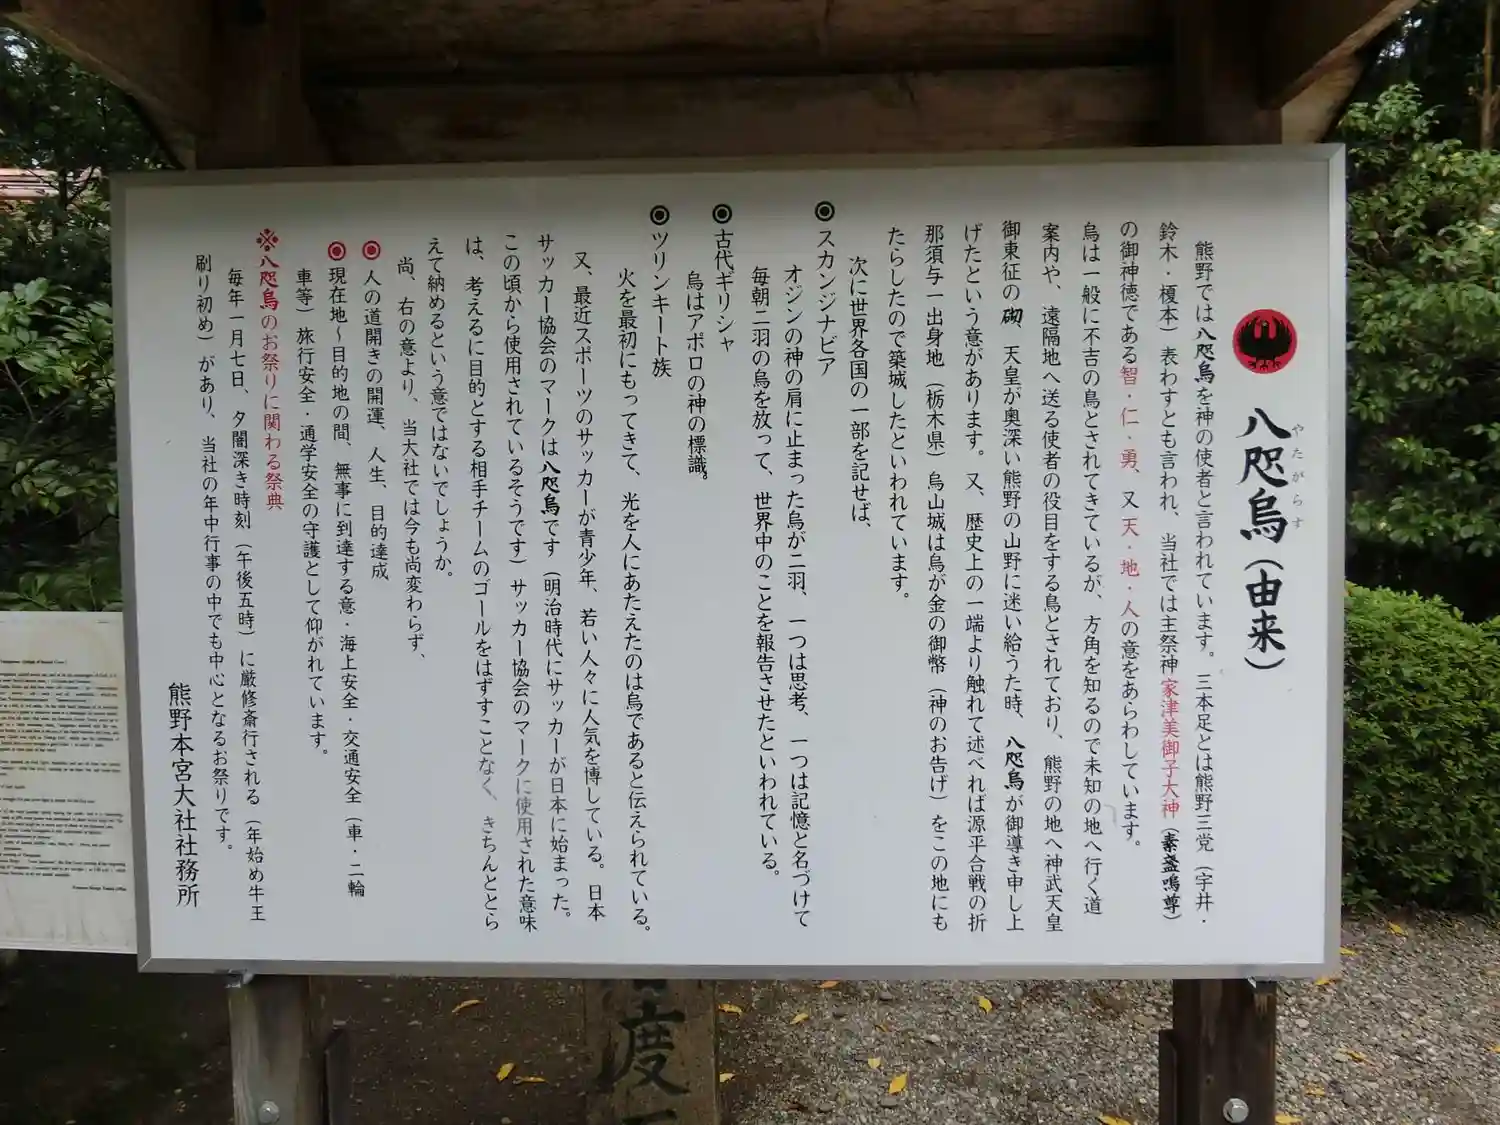 八咫烏（由来）
やたがらす
熊野では八咫烏を神の使者と言われています。三本足とは熊野三党（宇井・
鈴木・榎本）表わすとも言われ、当社では主祭神家津美御子大神（素盞嗚尊）
の御神徳である智・仁・勇、又天・地・人の意をあらわしています。
烏は一般に不吉の鳥とされてきているが、方角を知るので未知の地へ行く道
案内や、遠隔地へ送る使者の役目をする鳥とされており、熊野の地へ神武天皇
御東征の砌、天皇が奥深い熊野の山野に迷い給うた時、八咫烏が御導き申し上
げたという意があります。又、歴史上の一端より触れて述べれば源平合戦の折
那須与一出身地（栃木県）烏山城は烏が金の御幣（神のお告げ）をこの地にも
たらしたので築城したといわれています。
次に世界各国の一部を記せば、
◉スカンジナビア
オジンの神の肩に止まった烏が二羽、一つは思考、一つは記憶と名づけて
毎朝二羽の烏を放って、世界中のことを報告させたといわれている。
◉古代ギリシャ
烏はアポロの神の標識。
◉ツリンキート族
火を最初にもってきて、光を人にあたえたのは烏であると伝えられている。
又、最近スポーツのサッカーが青少年、若い人々に人気を博している。日本
サッカー協会のマークは八咫烏です（明治時代にサッカーが日本に始まった。
この頃から使用されているそうです）サッカー協会のマークに使用された意味
は、考えるに目的とする相手チームのゴールをはずすことなく、きちんととら
えて納めるという意ではないでしょうか。
尚、右の意より、当大社では今も尚変わらず、
◉人の道開きの開運、人生、目的達成
◉現在地〜目的地の間、無事に到達する意・海上安全・交通安全（車・二輪
車等）旅行安全・通学安全の守護として仰がれています。
※八咫烏のお祭りに関わる祭典
毎年一月七日、夕闇深き時刻（午後五時）に厳修斎行される（年始め牛王
刷り初め）があり、当社の年中行事の中でも中心となるお祭りです。
熊野本宮大社社務所
度